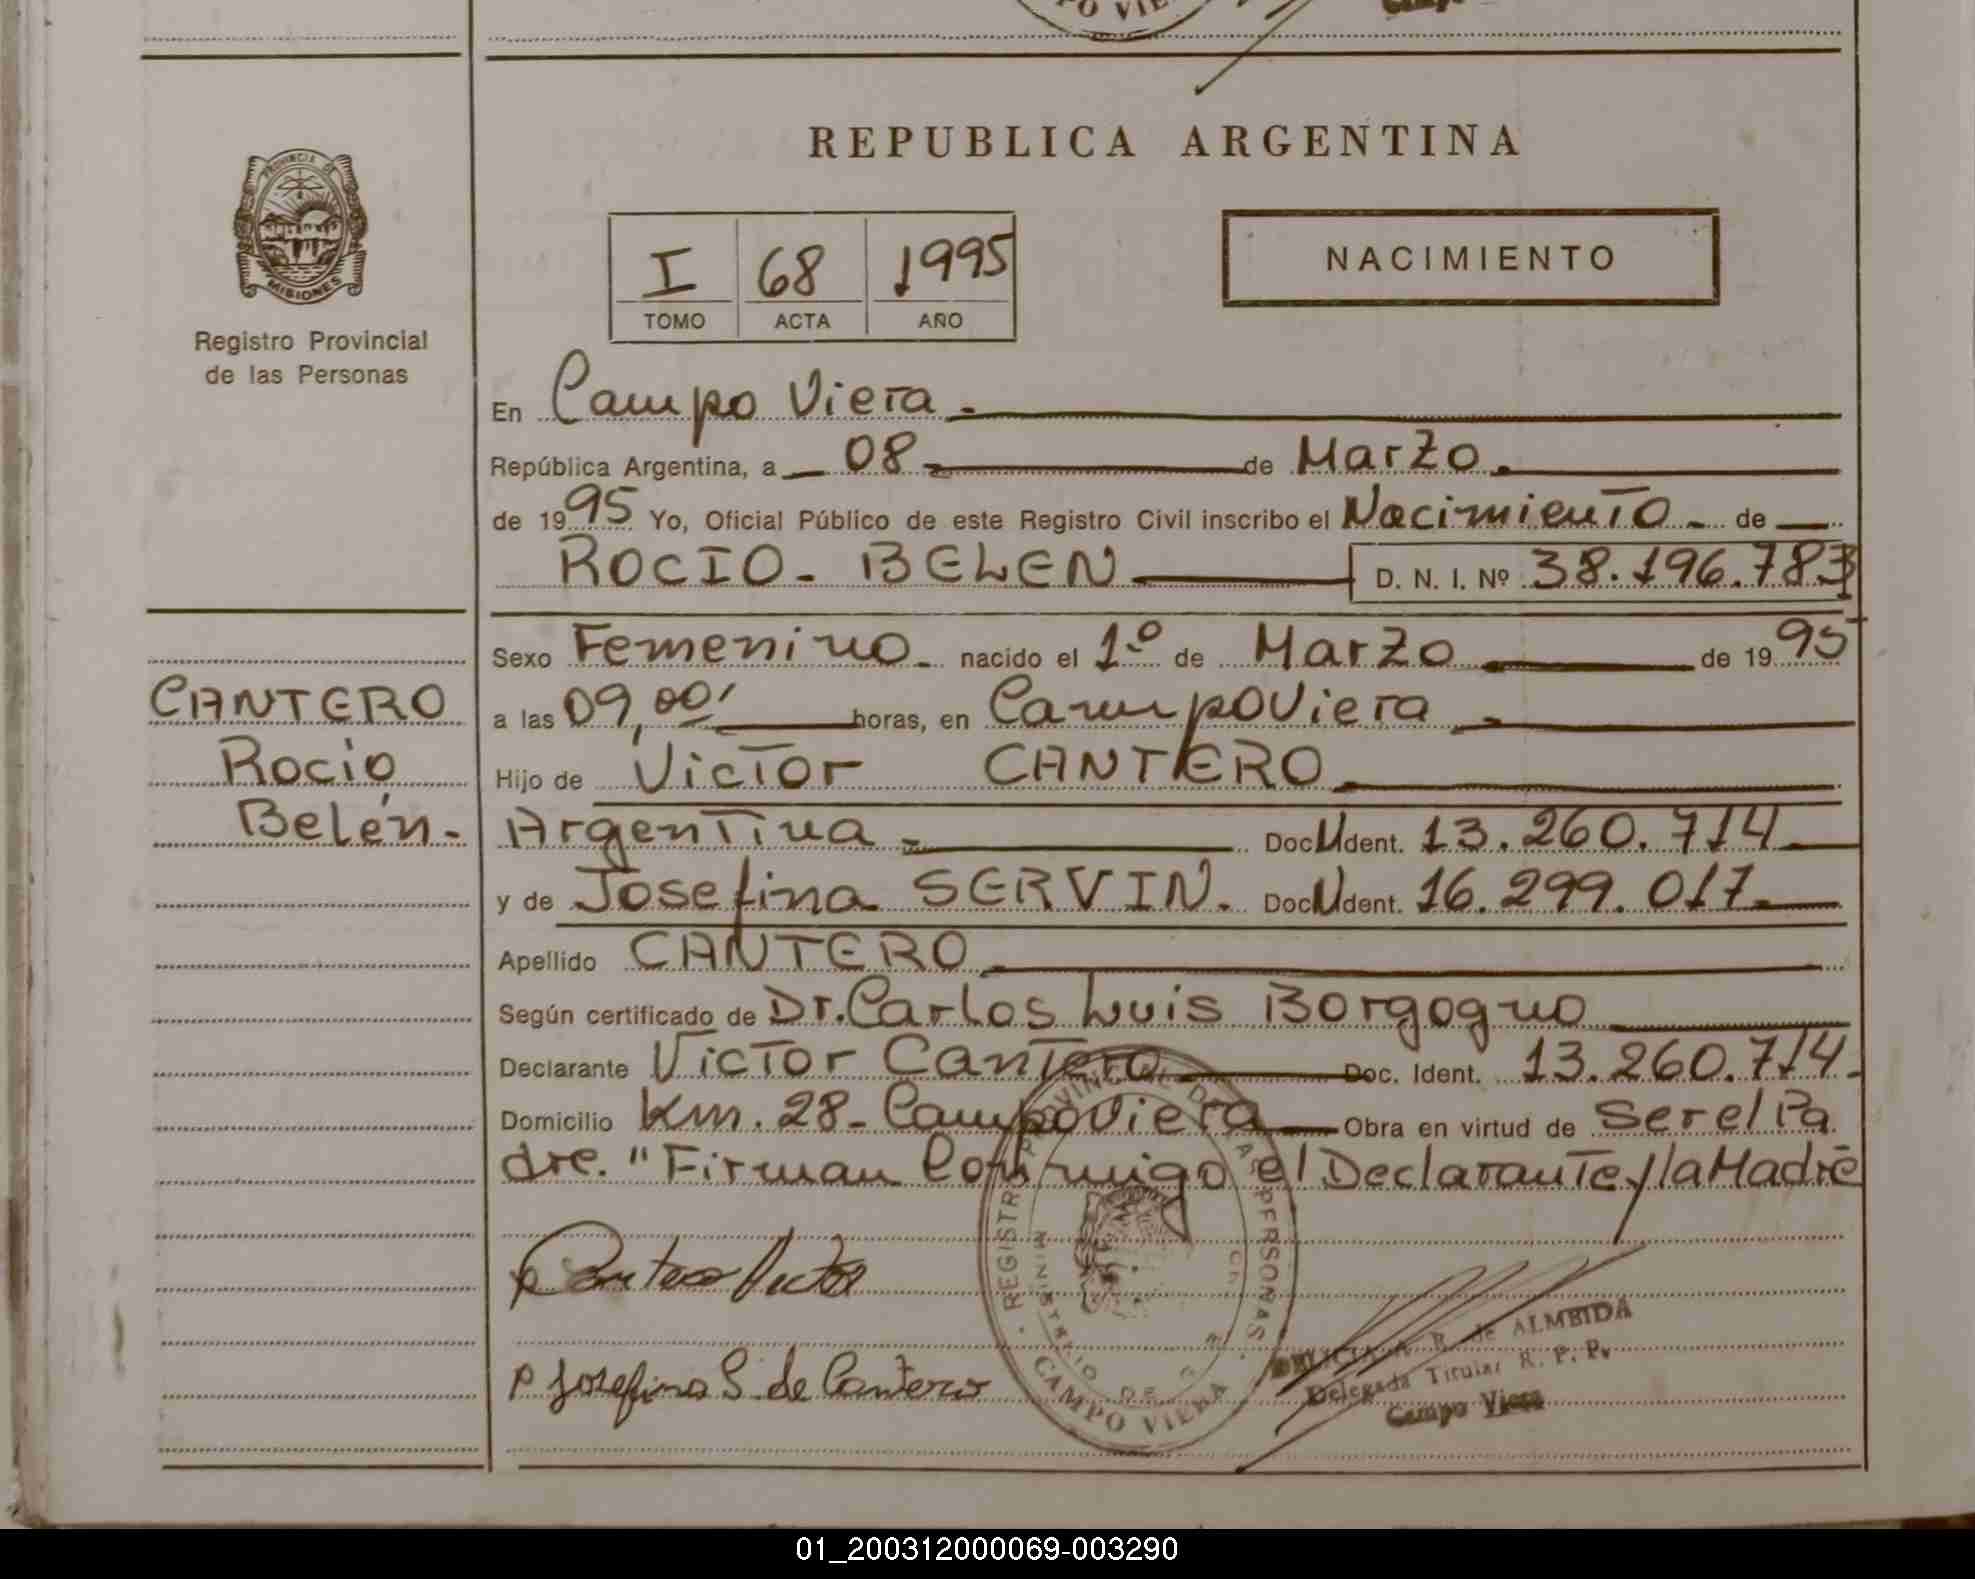 PROVINCIA DE
MISIONES
Registro Provincial
de las Personas
REPUBLICA ARGENTINA
I 68 1995
TOMO ACTA AÑO
NACIMIENTO
En Campo Viera.
República Argentina, a 08 de Marzo.
de 1995 Yo, Oficial Público de este Registro Civil inscribo el Nacimiento de
ROCIO - BELEN D. N. I. Nº 38.196.783
Sexo Femenino nacido el 1º de Marzo de 1995
a las 09,00' horas, en Campo Viera
Hijo de Victor CANTERO
Argentina Doc. Ident. 13.260.714
y de Josefina SERVIN. Doc. Ident. 16.299.017
Apellido CANTERO
Según certificado de Dr. Carlos Luis Borgogno
Declarante Victor Cantero Doc. Ident. 13.260.714.
Domicilio Km. 28 - Campo Viera Obra en virtud de Ser el Pa
dre. "Firman Conmigo el Declarante y la Madre
CANTERO
Rocío
Belén.
Cantero Victor
Josefina S. de Cantero
CAMPO VIERA
R. de ALMEIDA
Delegada Titular R. P. P.
Campo Viera
01_200312000069-003290